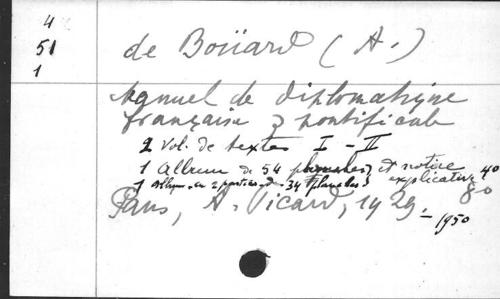 4
51
1
de Boüard (A.)
Manuel de diplomatique
française & pontificale
2 Vol. de textes I - II
1 Album de 54 planches et notice explicative 4o
1 Album en 2 parties de 34 planches 8o
Paris, A. Picard, 1929 - 1950